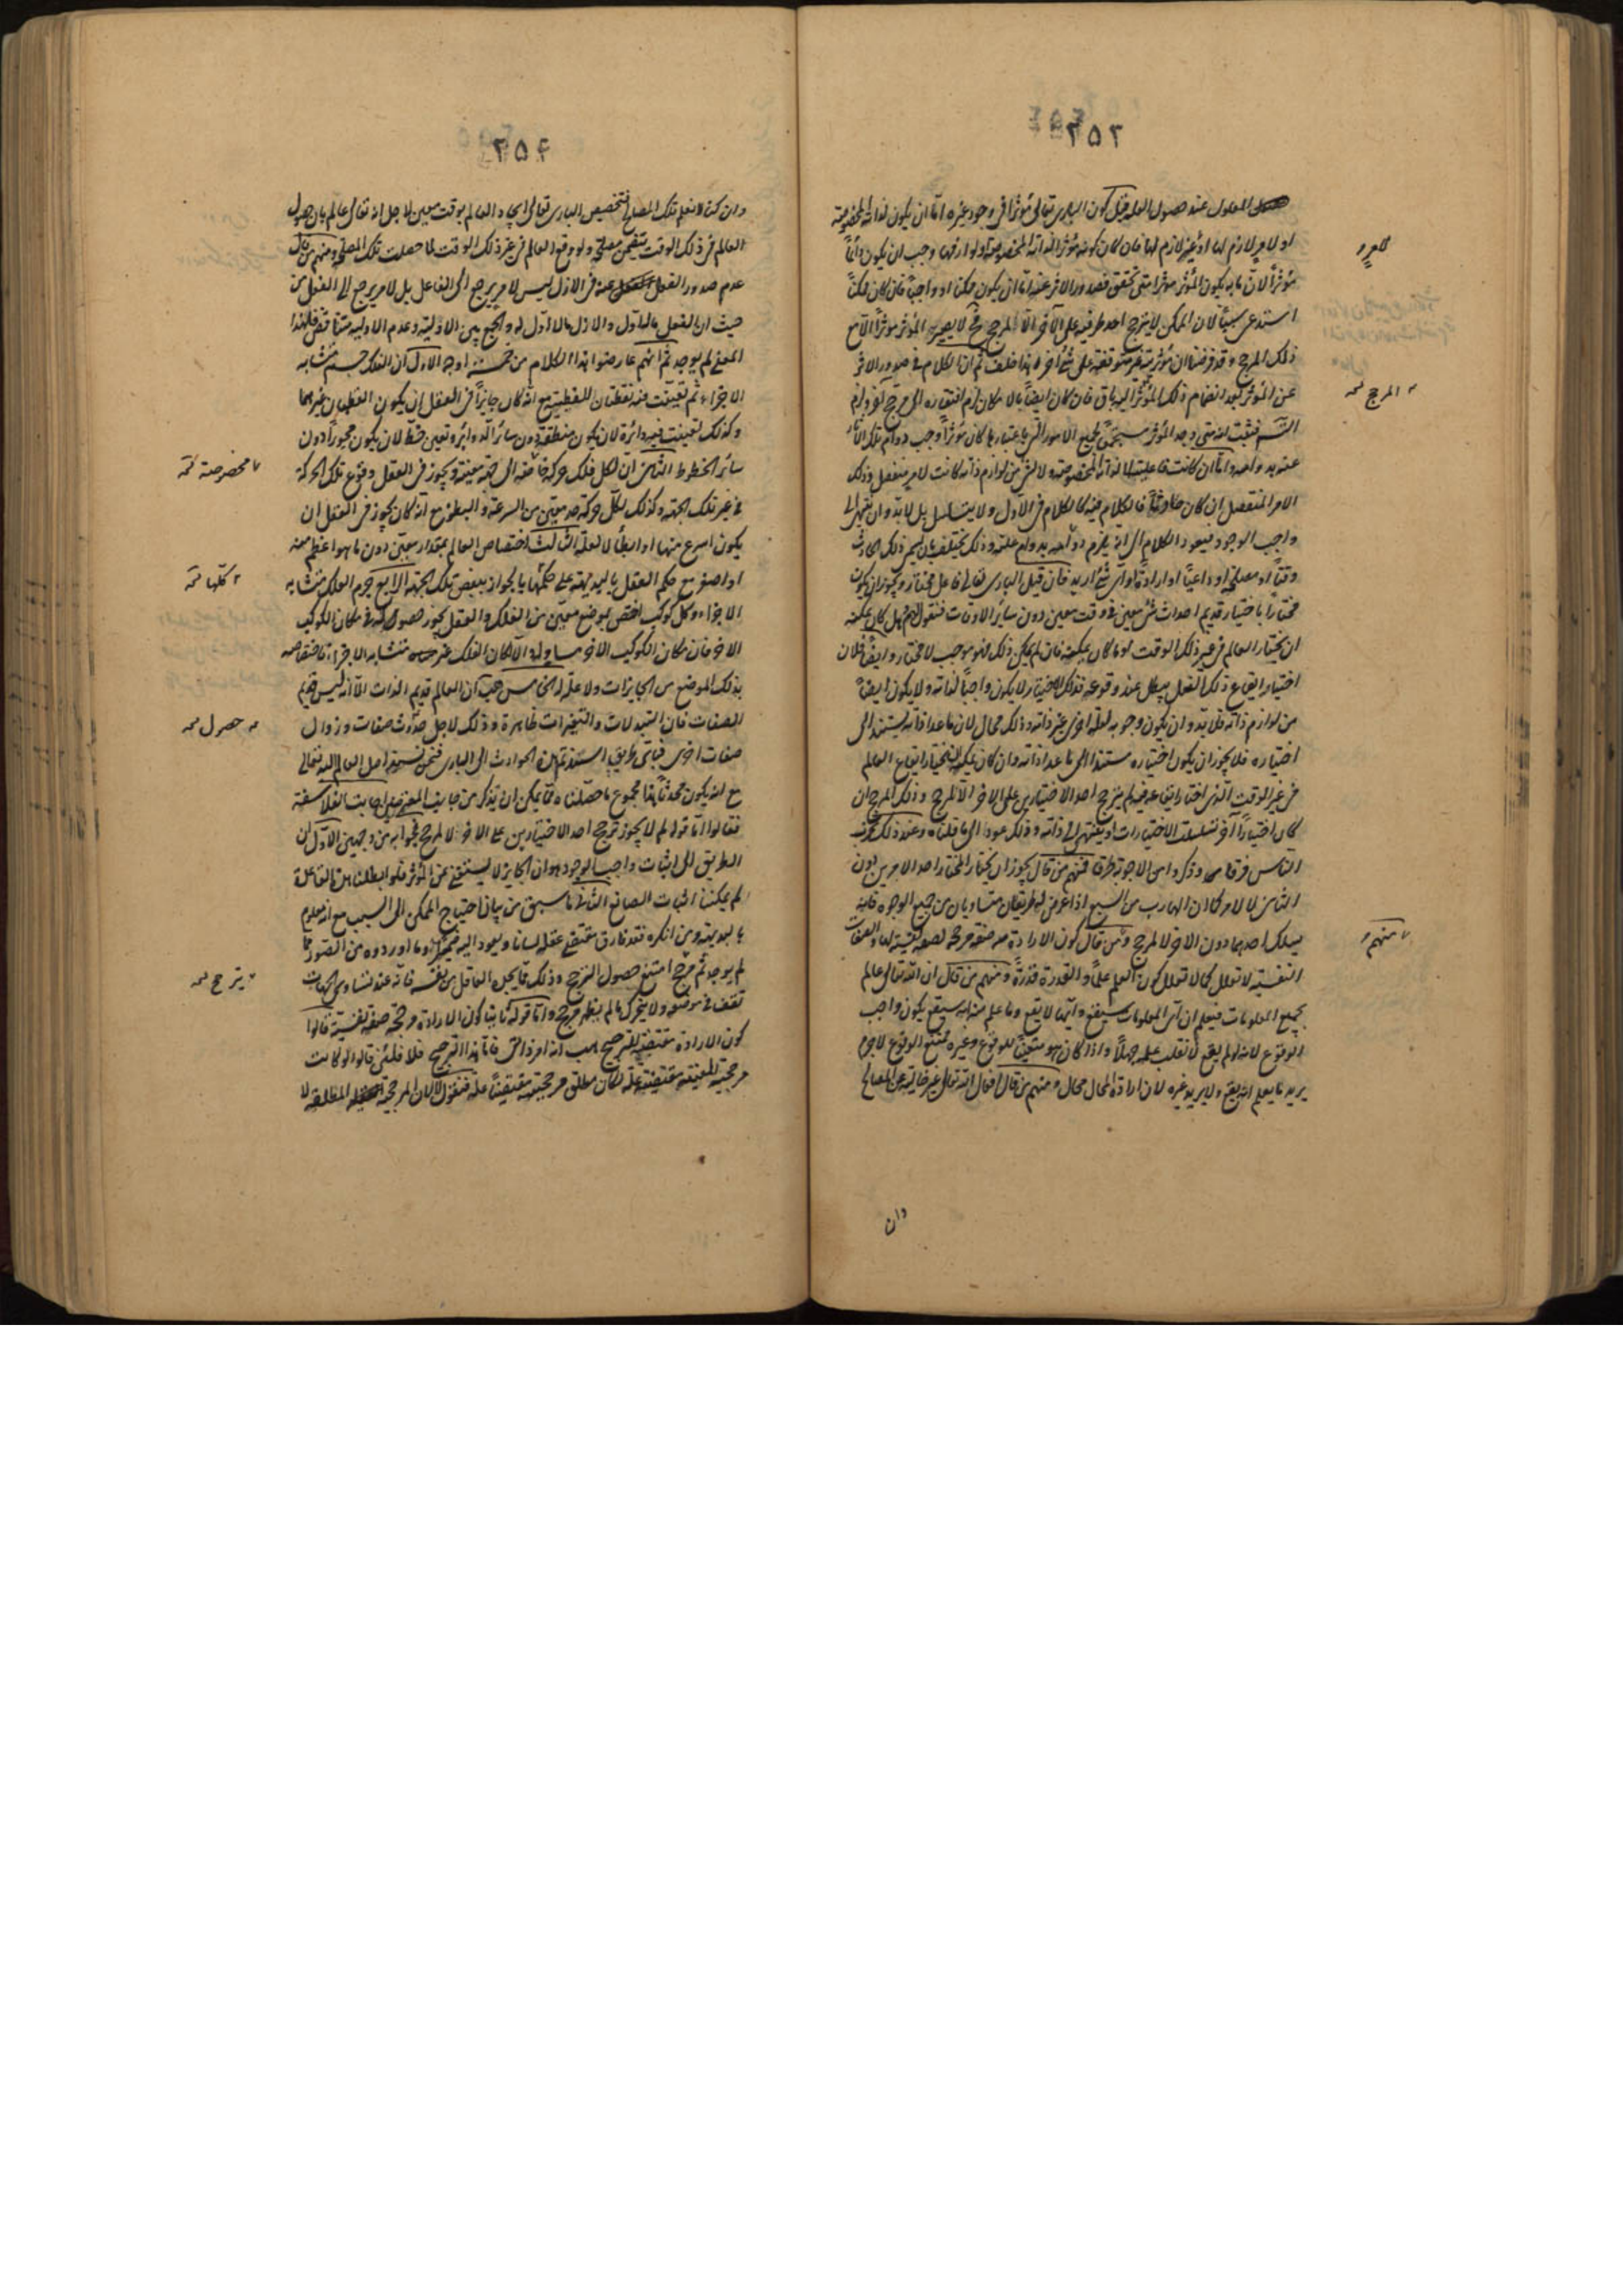 ٢٥٣
المعلول عند حصول العلة قيل كون البارى تعالى مؤثرا فى وجود غيره اما ان يكون لذاته المخصوصة
او لامر لازم لها او غير لازم لها فان كان كونه مؤثرا لذاته المخصوصة او لوازمها وجب ان يكون دائماً
مؤثراً لان ما به يكون المؤثر مؤثرا متى تحقق فصدور الاثر عنه اما ان يكون ممكنا او واجباً فان كان ممكناً
استدعى سبباً لان الممكن لا يترجح احد طرفيه على الآخر الا لمرجح فح لا يصير المؤثر مؤثراً الا مع
ذلك المرجح وقد فرضنا ان مؤثريته غير متوقفة على شئ آخر هذا خلف ثم ان الكلام فى صدور الاثر
عن المؤثر بعد انضمام ذلك المؤثر اليه باق فان كان ايضاً بالامكان لزم افتقاره الى مرجح آخر ولزم
التس فثبت انه متى وجد المؤثر مستجمعاً لجميع الامور التى باعتبارها كان مؤثراً وجب دوام تلك الآثار
عنه به واحد واما ان كانت فاعليته لا لذاته المخصوصة ولا لشئ من لوازم ذاته كانت لامر منفصل وذلك
الامر المنفصل ان كان حادثاً فالكلام فيه كالكلام فى الاول ولا يتسلسل بل لابد وان ينتهى الى
واجب الوجود فيعود الكلام الى انه يلزم دوامه بدوام علته وذلك يختلف بان يسمى ذلك الحادث
وقتاً او مصلحة او داعياً او ارادة او اى شئ اريد فان قيل البارى تعالى فاعل مختار ويجوز ان يكون
مختاراً باختيار قديم احداث شئ معين فى وقت معين دون سائر الاوقات فنقول لهم هل كان يمكنه
ان يختار العالم فى غير ذلك الوقت او ما كان يمكنه فان لم يمكن ذلك فهو موجب لا مختار وايضاً فلان
اختيار ايقاع ذلك الفعل يبطل عند وقوعه فذلك الاختيار لا يكون واجباً لذاته ولا يكون ايضاً
من لوازم ذاته فلابد وان يكون وجوبه لعلة اخرى غير ذاته وذلك محال لان ما عدا ذاته يستند الى
اختياره فلا يجوز ان يكون اختياره مستندا الى ما عدا ذاته وان كان يمكنه ان يختار ايقاع العالم
فى غير الوقت الذى اختار ايقاعه فيه لم يترجح احد الاختيارين على الاخر الا لمرجح وذلك المرجح ان
كان اختياراً آخر تسلسلت الاختيارات او ينتهى الى ذاته وذلك عود الى ما قلناه وعند ذلك تحزب
الناس فرقا وذكروا من الاجوبة طرقا فمنهم من قال يجوز ان يختار المختار احد الامرين دون
الثانى لا لامر كما ان الهارب من السبع اذا عرض له طريقان متساويان من جميع الوجوه فانه
يسلك احدهما دون الاخر لا لمرجح ومن قال كون الارادة صفة مرجحة لصفة نفسية لها والصفات
النفسية لا تعلل كما لا تعلل كون العلم علماً والقدرة قدرةً ومنهم من قال ان الله تعالى عالم
بجميع المعلومات فيعلم ان اى المعلومات سيقع وايها لا يقع وما علم منه انه سيقع يكون واجب
الوقوع لانه لو لم يقع لانقلب علمه جهلاً واذا كان هو متعيناً للوقوع وغيره ممتنع الوقوع لاجرم
يريد ما يعلم انه يقع ولا يريد غيره لان ارادة المحال محال ومنهم من قال افعال الله تعالى غير خالية عن المصالح
لامر
المرجح
منهم
وان
٢٥٤
وان كنا لا نعلم تلك المصالح فتخصيص البارى تعالى ايجاد العالم بوقت معين لاجل انه تعالى عالم بان حصول
العالم فى ذلك الوقت يتضمن مصلحة ولو وقع العالم فى غير ذلك الوقت لما حصلت تلك المصلحة ومنهم من قال
عدم صدور الفعل عنه فى الازل ليس لامر يرجع الى الفاعل بل لامر يرجع الى الفعل من
حيث ان الفعل ماله اول والازل مالا اول له والجمع بين الاولية وعدم الاولية متناقض فلهذا
المعنى لم يوجد ثم انهم عارضوا هذا الكلام من خمسة اوجه الاول ان الفلك جسم متشابه
الاجزاء ثم تعينت منه نقطتان للقطبية مع انه كان جايزاً فى العقل ان يكون القطبان غيرهما
وكذلك تعينت فيه دائرة لان يكون منطقة دون سائر الدوائر وتعين خط لان يكون محوراً دون
سائر الخطوط الثانى ان لكل فلك حركة خاصة الى جهة معينة ويجوز فى العقل وقوع تلك الحركة
فى غير تلك الجهة وكذلك لكل حركة حد معين من السرعة والبطؤ مع انه كان يجوز فى العقل ان
يكون اسرع منها او ابطأ لا لعلة الثالث اختصاص العالم بمقدار معين دون ما هو اعظم منه
او اصغر مع حكم العقل بالبديهة على حكمها بالجواز ببعض تلك الجهة الرابع جرم الفلك متشابه
الاجزاء وكل كوكب اختص بموضع معين من الفلك والعقل يجوز حصوله فى مكان الكوكب
الاخر فان مكان الكوكب الاخر مساو له الا لكان الفلك غير متشابه الاجزاء فاختصاصه
بذلك الموضع من الجايزات ولا علة له الخامس هب ان العالم قديم الذات الا انه ليس قديم
الصفات فان التبدلات والتغيرات ظاهرة وذلك لاجل حدوث صفات وزوال
صفات اخرى فباى طريق استند تم هذه الحوادث الى البارى فنحن نسند اصل العالم اليه تعالى
مع انه يكون محدثا فهذا مجموع ما حصلناه مما يمكن ان يذكر من جانب المعتزلة اجابت الفلاسفة
فقالوا اما قوله لم لا يجوز ترجح احد الاختيارين على الاخر لا لمرجح فجوابه من وجهين الاول ان
الطريق الى اثبات واجب الوجود هو ان الجايز لا يستغنى عن المؤثر فلو ابطلنا هذه القاعدة
لم يمكننا اثبات الصانع الثانى ما سبق من بيان احتياج الممكن الى السبب مع انه معلوم
بالبديهة ومن انكره فقد فارق مقتضى عقله لسانا ويعود اليه ضميرا وما اوردوه من الصور فما
لم يوجد ثم مرجح امتنع حصول الترجح وذلك مما يجده العاقل من نفسه فانه عند تساوى الجهات
تقف فى موضعه ولا يتحرك ما لم يظهر مرجح واما قوله ثانيا كون الارادة مرجحة صفة نفسية فالوا
كون الارادة مقتضية للترجيح هب انه امر ذاتى فاما هذا الترجيح فلا فلئن قالوا لو كانت
مرجحية المعينة مقتضية علة لكان مطلق مرجحيته مقتضيةً علة فنقول لا لان المرجحية المطلقة لا
مخصوصة
كلها
حصول
يترجح